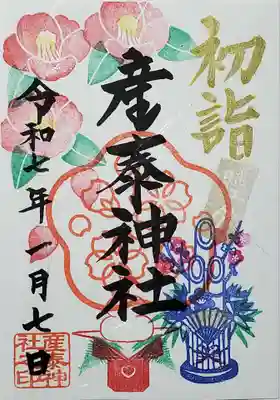 初詣
産泰神社
令和七年一月七日
産泰神
社之印